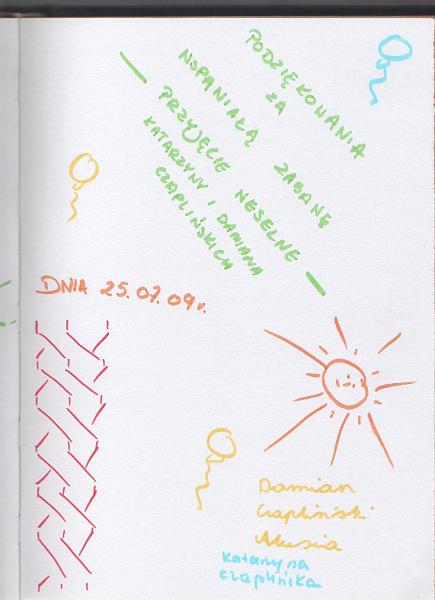 PODZIĘKOWANIA
ZA
WSPANIAŁĄ ZABAWĘ
— PRZYJĘCIE WESELNE —
KATARZYNY I DAMIANA
CZAPLIŃSKICH
DNIA 25.07.09r.
Damian
Czapliński
Alusia
Katarzyna
czaplińska